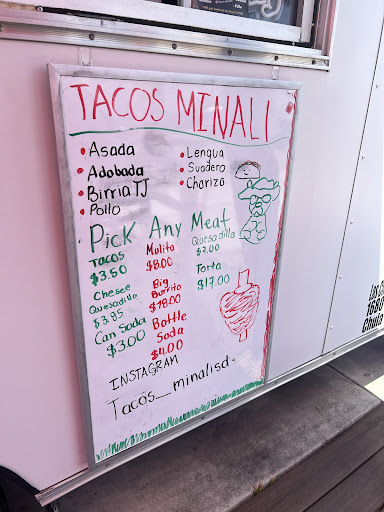 TACOS MINALI
• Asada
• Adobada
• Birria TJ
• Pollo
• Lengua
• Suadero
• Chorizo
Pick Any Meat
TACOS
$3.50
Chesee
Quesadilla
$3.95
Can Soda
$3.00
Mulita
$8.00
Big
Burrito
$18.00
Bottle
Soda
$4.00
Quesadilla
$7.00
Torta
$17.00
INSTAGRAM
Tacos_minalisd
1680
Chula